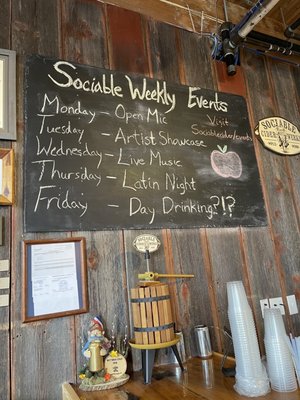 Sociable Weekly Events
Monday - Open Mic
Tuesday - Artist Showcase
Wednesday - Live Music
Thursday - Latin Night
Friday - Day Drinking?!?
Visit
Sociablecider/events
SOCIABLE
CIDER WERKS